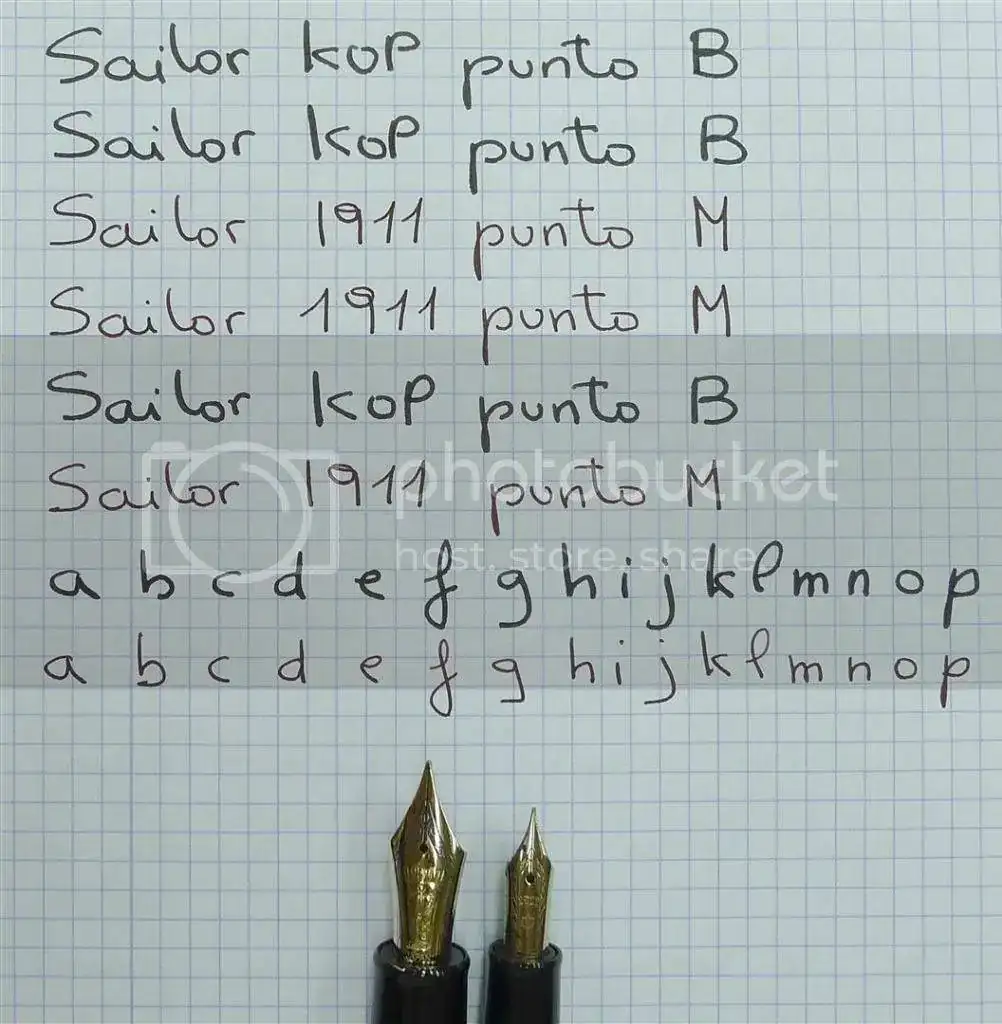 Sailor KOP punto B
Sailor KOP punto B
Sailor 1911 punto M
Sailor 1911 punto M
Sailor KOP punto B
Sailor 1911 punto M
photobucket
host. store. share
a b c d e f g h i j k l m n o p
a b c d e f g h i j k l m n o p